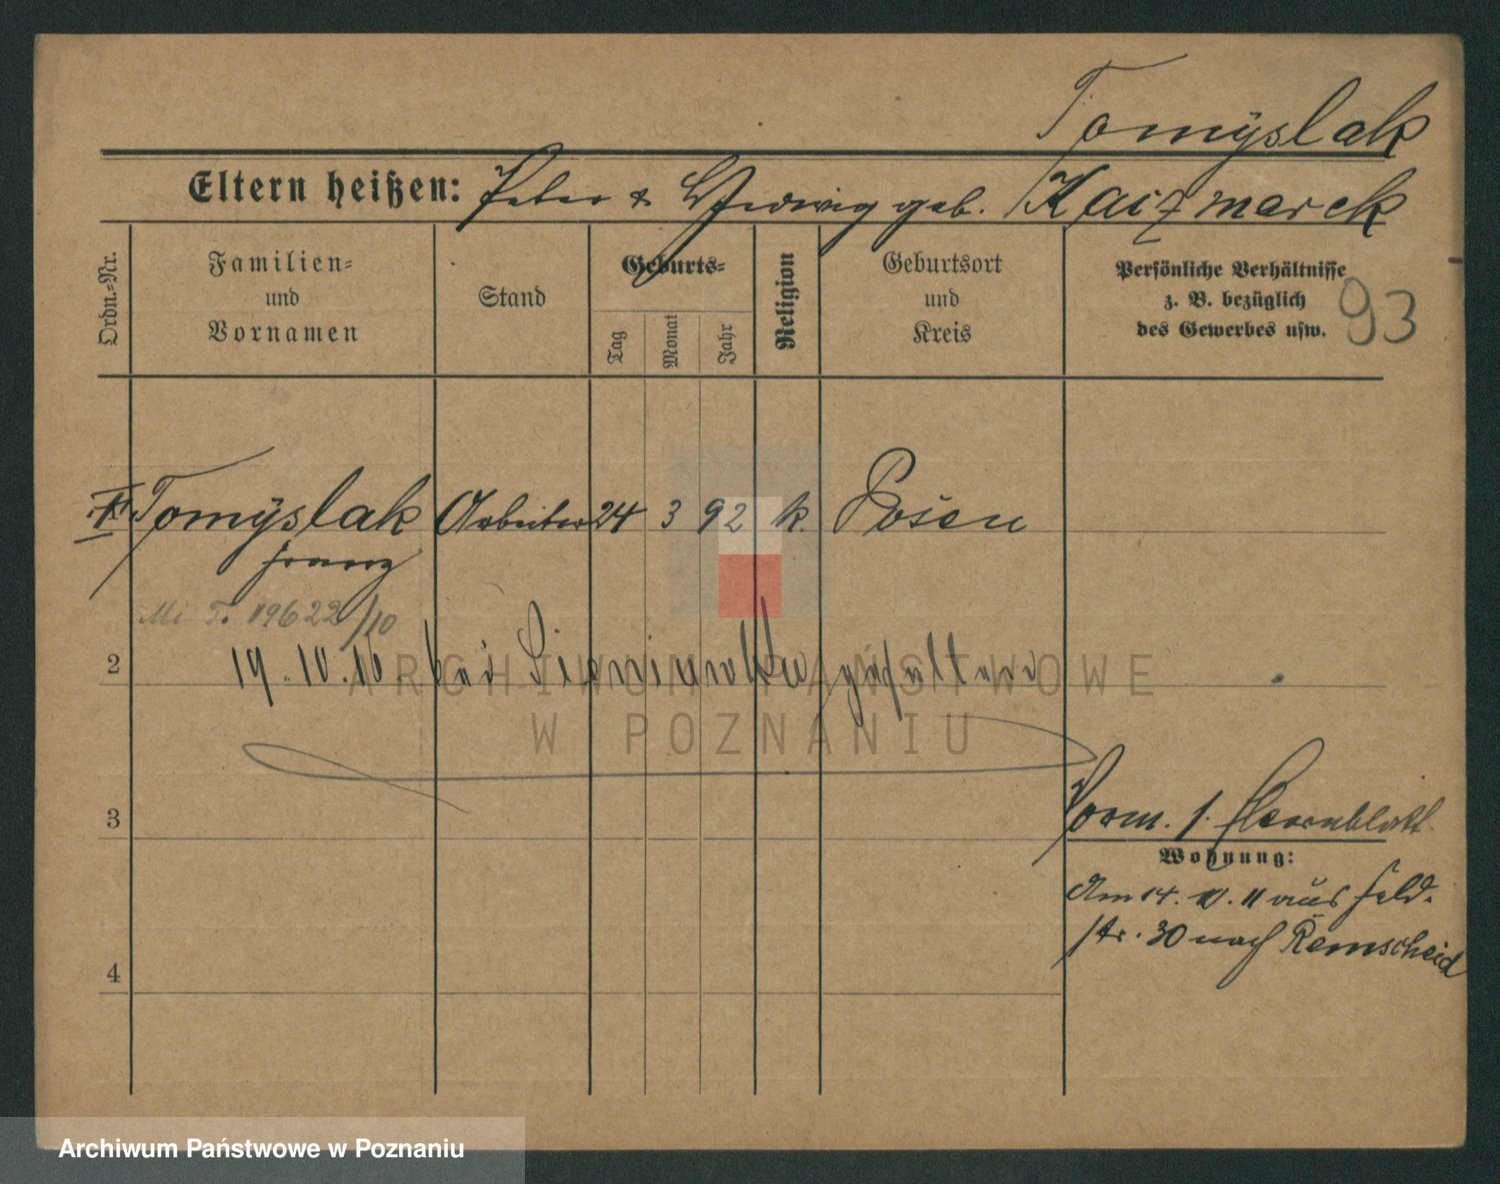 Tomÿslak
Eltern heißen: Peter & Hedwig geb. Kaczmarek
Ordn.-Nr.
Familien-
und
Vornamen
Stand
Geburts-
Tag
Monat
Jahr
Religion
Geburtsort
und
Kreis
Persönliche Verhältnisse
z. B. bezüglich
des Gewerbes usw.
93
Tomÿslak Arbeiter 24 3 92 k. Posen
Franz
19622/10
2
19.10.16. bei gefallen
3
Vorm. s.
Wohnung:
Am 14. 10. 11 aus Feld-
str. 30 nach Remscheid
4
ARCHIWUM PAŃSTWOWE
W POZNANIU
Archiwum Państwowe w Poznaniu